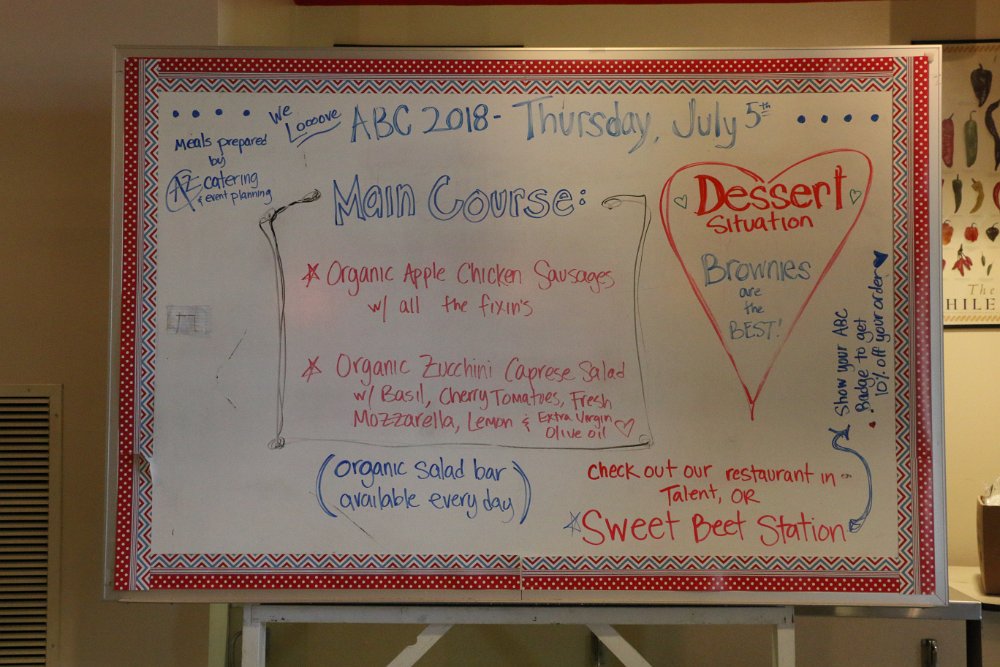 We Loooove ABC 2018- Thursday, July 5th
Meals prepared
by
AZ catering
& event planning
Main Course:
Organic Apple Chicken Sausages
w/ all the fixin's
Organic Zucchini Caprese Salad
w/ Basil, Cherry Tomatoes, Fresh
Mozzarella, Lemon & Extra Virgin
Olive oil
(organic salad bar
available every day)
Dessert
Situation
Brownies
are
the
BEST!
Show your ABC
Badge to get
10% off your order
check out our restaurant in -
Talent, OR
Sweet Beet Station
The
HILE